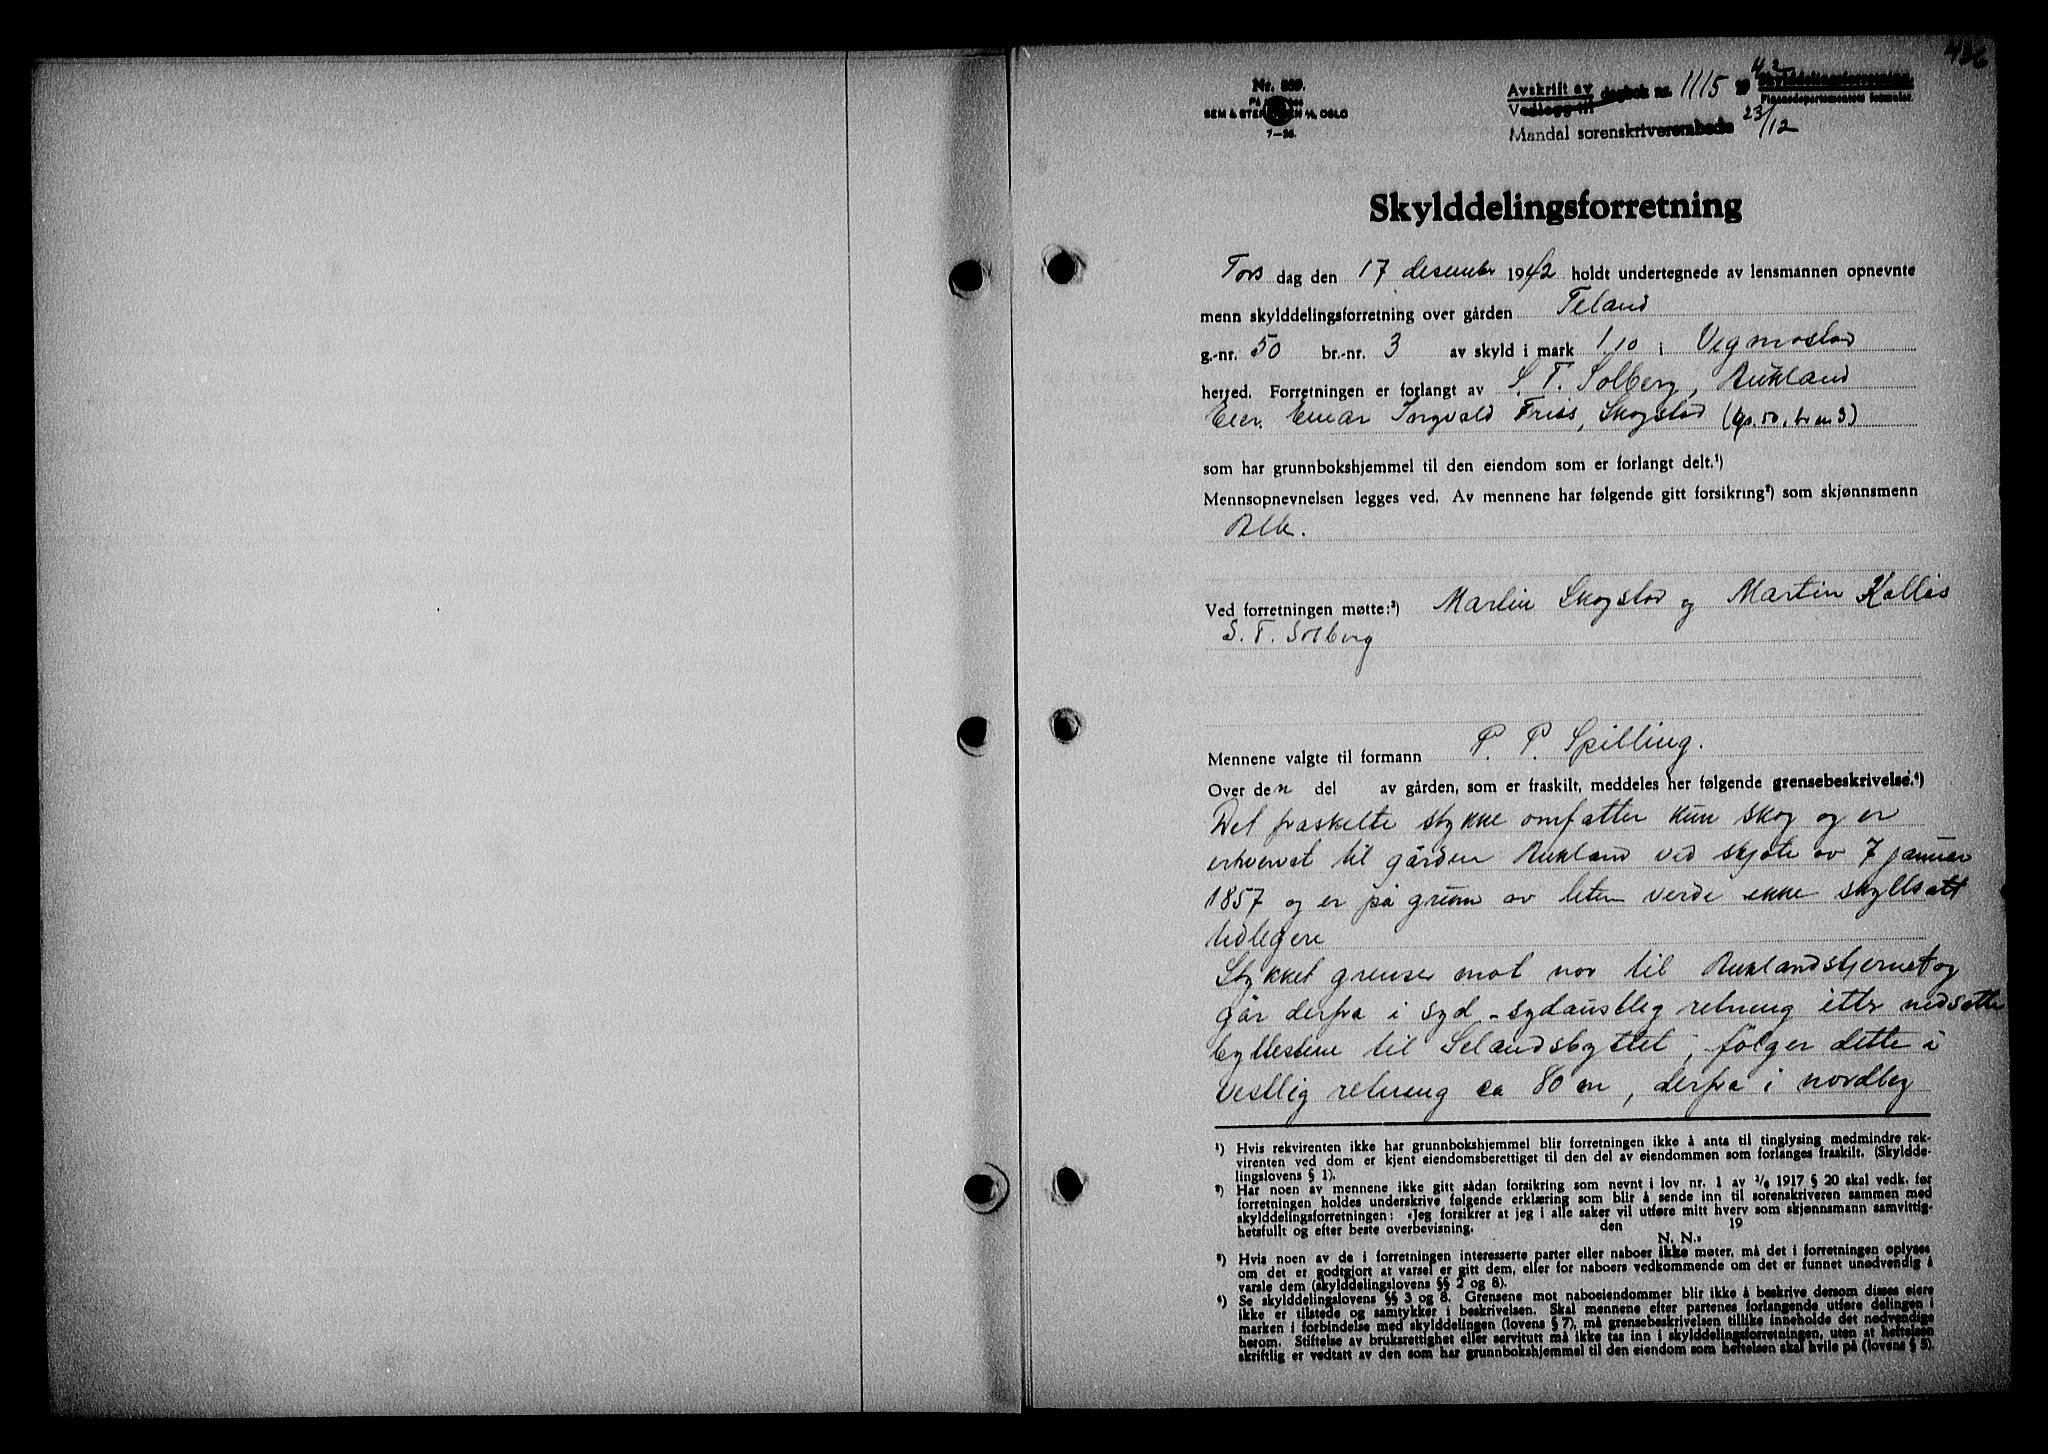 Nr. 899.
SEM & STENERSEN A/S, OSLO
7—36.
Avskrift av dagbok nr. 1115 1942
Vedlegg til
23/12
Mandal sorenskriverembede
Skylddelingsforretning.
Finansdepartementets formular.
Skylddelingsforretning
Tors dag den 17 desember 1942 holdt undertegnede av lensmannen opnevnte
menn skylddelingsforretning over gården Teland
g.-nr. 50 br.-nr. 3 av skyld i mark 1,10 i Vegmostad
herred. Forretningen er forlangt av S. T. Solberg, Aukland
Eier. Einar Torgvald Friis, Skogstad (gr. 50, br nr 3)
som har grunnbokshjemmel til den eiendom som er forlangt delt.¹)
Mennsopnevnelsen legges ved. Av mennene har følgende gitt forsikring²) som skjønnsmenn
Alle.
Ved forretningen møtte:³) Martin Skogstad og Martin Kallås
S. T. Solberg
Mennene valgte til formann P. P. Spilling.
Over den del av gården, som er fraskilt, meddeles her følgende grensebeskrivelse.⁴)
Det fraskelte stykke omfatter kun skog og er
erhvervet til gården Aukland ved skjøte av 7 januar
1857 og er på grunn av liten verde ikke skyllsatt
tidligere
Stykket grenser mot nor til Auklandstjernet og
går derfra i syd-sydaustleg retning etter nedsatte
byttestene til Selandsbyttet, følger dette i
vestlig retning ca 80 m, derfra i nordleg
¹) Hvis rekvirenten ikke har grunnbokshjemmel blir forretningen ikke å anta til tinglysing medmindre rek-
virenten ved dom er kjent eiendomsberettiget til den del av eiendommen som forlanges fraskilt. (Skyldde-
lingslovens § 1).
²) Har noen av mennene ikke gitt sådan forsikring som nevnt i lov nr. 1 av 1/6 1917 § 20 skal vedk. før
forretningen holdes underskrive følgende erklæring som blir å sende inn til sorenskriveren sammen med
skylddelingsforretningen: »Jeg forsikrer at jeg i alle saker vil utføre mitt hverv som skjønnsmann samvittig-
hetsfullt og efter beste overbevisning. den 19
N. N.«
³) Hvis noen av de i forretningen interesserte parter eller naboer ikke møter, må det i forretningen oplyses
om det er godtgjort at varsel er gitt dem, eller for naboers vedkommende om det er funnet unødvendig å
varsle dem (skylddelingslovens §§ 2 og 8).
⁴) Se skylddelingslovens §§ 3 og 8. Grensene mot naboeiendommer blir ikke å beskrive dersom disses eiere
ikke er tilstede og samtykker i beskrivelsen. Skal mennene efter partenes forlangende utføre delingen i
marken i forbindelse med skylddelingen (lovens § 7), må grensebeskrivelsen tillike inneholde det nødvendige
herom. Stiftelse av bruksrettighet eller servitutt må ikke tas inn i skylddelingsforretningen, uten at heftelsen
skriftlig er vedtatt av den som har grunnbokshjemmel til den eiendom som heftelsen skal hvile på (lovens § 5).